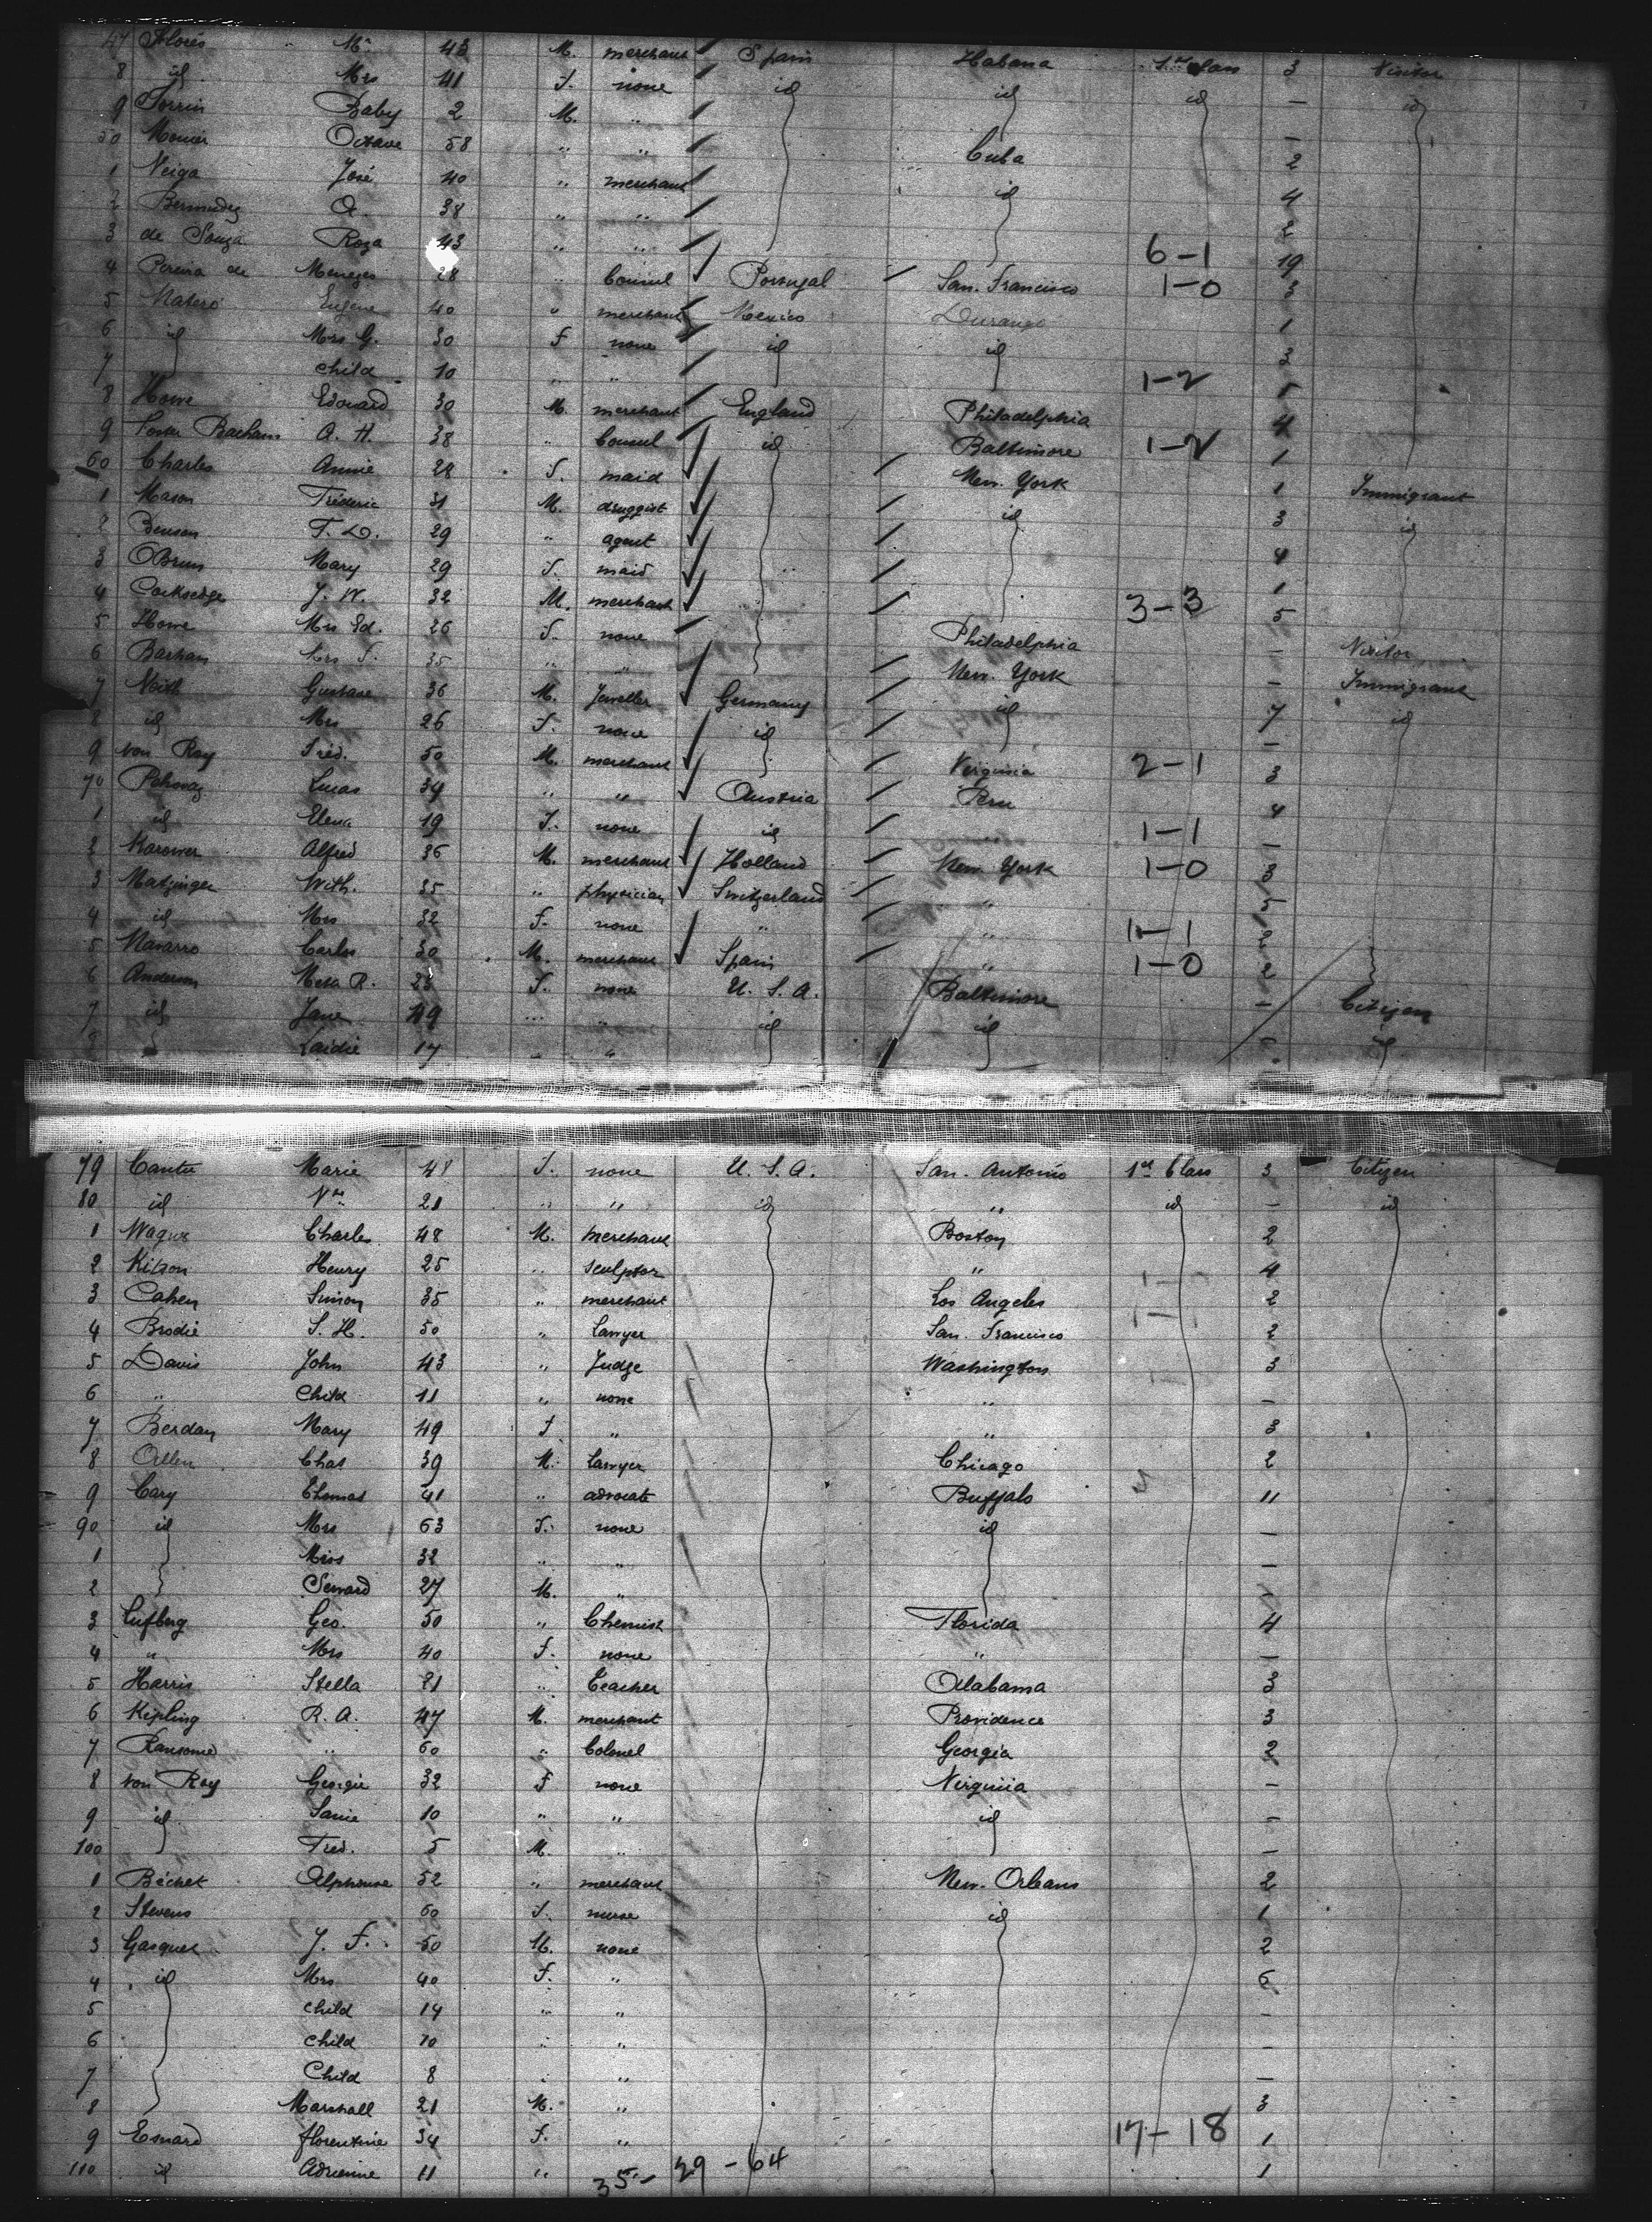 47 Flores Mr 43 M. merchant Spain Habana 1st Class 3 Visitor
8 id Mrs 41 F. none id id id — id
9 Baby 2 M. "
50 Octave 58 " " Cuba 2
1 Veiga José 40 " merchant id 4
2 Bermudez A. 38 " " 2
3 de Souza Roza 43 " " 6-1 19
4 Pereira de Menezes 28 " Consul Portugal San Francisco 1-0 3
5 Natera Eugene 40 " merchant Mexico Durango 1
6 id Mrs G. 30 F none id id 3
7 child 10 " " 1-2 5
8 Howe Edouard 30 M. merchant England Philadelphia 4
9 A. H. 38 " Consul id Baltimore 1-2 1
60 Charles Annie 28 F. maid New York 1 Immigrant
1 Mason Fréderic 31 M. druggist id 3 id
2 Benson F. D. 29 " agent 4
3 OBrien Mary 29 F. maid 1
4 Cocksedge J. W. 32 M. merchant 3-3 5
5 Howe Mrs Ed. 26 F. none Philadelphia — Visitor
6 Barhan Mrs F. 35 " " New York — Immigrant
7 Voith Gustave 36 M. Jeweller Germany id 7 id
8 id Mrs 26 F. none id —
9 von Roy Fréd. 50 M. merchant Virginia 2-1 3
70 Lucas 34 " " Austria Peru 4
1 id Elena 19 F. none id " 1-1 —
2 Karower Alfred 36 M. merchant Holland New York 1-0 3
3 Matzinger With. 35 " physician Switzerland " 5
4 id Mrs 32 F. none " " 1-1 2
5 Navarro Carlos 30 M. merchant Spain " 1-0 2
6 Anderson Meta R. 23 F. none U. S. A. Baltimore — Citizen
7 id Jane 49 " " id id id
8 17 " "
79 Cantu Marie 48 F. none U. S. A. San Antonio 1st Class 3 Citizen
80 id 21 " " id " id — id
1 Wagner Charles 48 M. merchant Boston 2
2 Kitson Henry 25 " sculptor " 4
3 Cahen Simon 35 " merchant Los Angeles 2
4 Brodie S. H. 50 " Lawyer San Francisco 2
5 Davis John 43 " Judge Washington 3
6 " child 11 " none " —
7 Berdan Mary 49 F " " 3
8 Allen Chas 39 M. Lawyer Chicago 2
9 Cary Thomas 41 " advocate Buffalo 11
90 id Mrs 63 F. none id —
1 Miss 32 " " —
2 Seward 27 M. " —
3 Lufberg Geo. 50 " Chemist Florida 4
4 " Mrs 40 F. none " —
5 Harris Stella 21 " Teacher Alabama 3
6 Kipling R. A. 47 M. merchant Providence 3
7 Ransome " 60 " Colonel Georgia 2
8 von Roy Georgie 32 F none Virginia —
9 id Janie 10 " " id —
100 Fréd. 5 M. " —
1 Béchet Alphonse 52 " merchant New Orleans 2
2 Stevens 60 F. nurse id 1
3 Gasquet J. F. 50 M. none 2
4 id Mrs 40 F. " 6
5 child 14 " " —
6 child 10 " " —
7 Child 8 " " —
8 Marshall 21 M. " 3
9 Esnard florentine 34 F. " 17-18 1
110 id Adrienne 11 " 35- 29-64 1